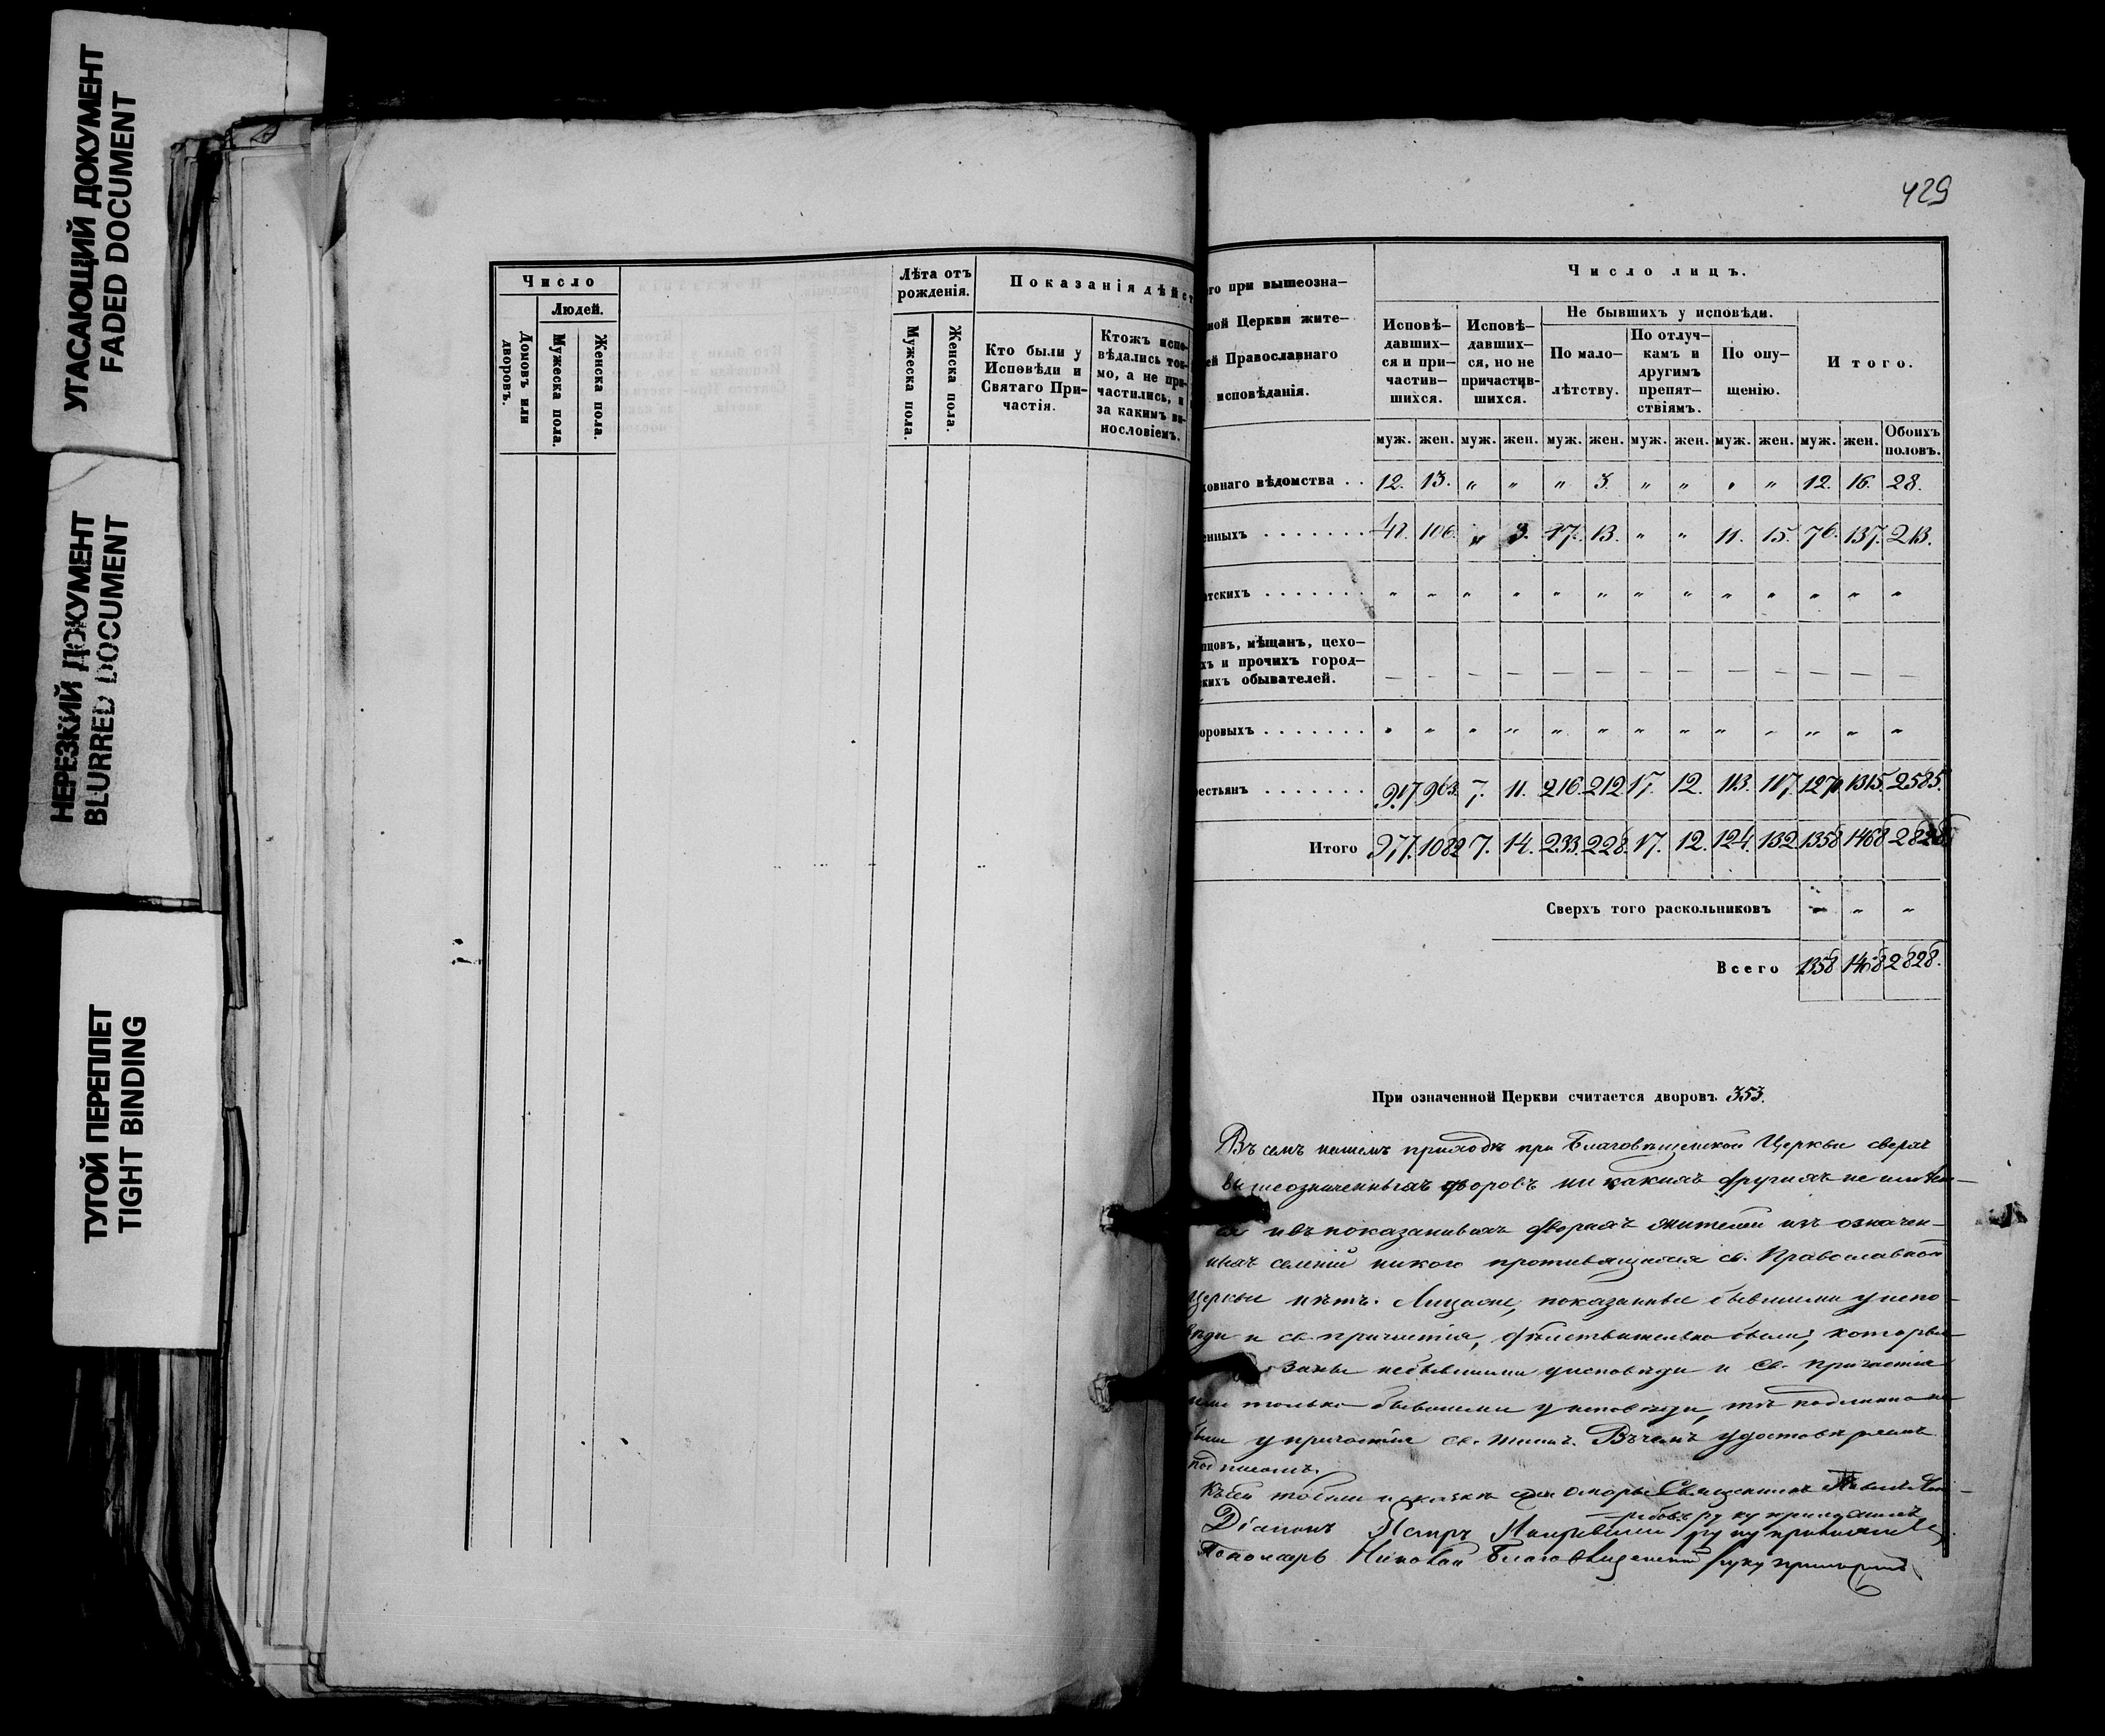 УГАСАЮЩИЙ ДОКУМЕНТ
FADED DOCUMENT
НЕРЕЗКИЙ ДОКУМЕНТ
BLURRED DOCUMENT
ТУГОЙ ПЕРЕПЛЕТ
TIGHT BINDING
Число
Людей.
Домовъ или дворовъ.
Мужеска пола.
Женска пола.
Лѣта отъ рожденія.
Мужеска пола.
Женска пола.
Показанія дѣйст
Кто были у
Исповѣди и
Святаго При-
частія.
Ктожъ испо-
вѣдались ток-
мо, а не при-
частились, и
за какимъ ви-
нословіемъ.
429
го при вышеозна-
ной Церкви жите-
ей Православнаго
исповѣданія.
Число лицъ.
Исповѣ-
давших-
ся и при-
частив-
шихся.
Исповѣ-
давших-
ся, но не
причастив-
шихся.
Не бывшихъ у исповѣди.
По мало-
лѣтству.
По отлуч-
камъ и
другимъ
препят-
ствіямъ.
По опу-
щенію.
Итого.
муж. жен. муж. жен. муж. жен. муж. жен. муж. жен. муж. жен. Обоихъ половъ.
ховнаго вѣдомства . . 12. 13. " " " 3. " " " " 12. 16. 28.
енныхъ . . . . . . . 106. " 3. 17. 13. " " 11. 15. 76. 137. 213.
атскихъ . . . . . . . " " " " " " " " " " " " "
пцовъ, мѣщанъ, цехо-
хъ и прочихъ город-
скихъ обывателей. — — — — — — — — — — — — —
оровыхъ . . . . . . . " " " " " " " " " " " " "
естьянъ . . . . . . . 917 963. 7. 11. 216. 212 17. 12. 113. 117. 1270 1315. 2585.
Итого 977. 1082 7. 14. 233. 228. 17. 12. 124. 132 1358 1468 2828
Сверхъ того раскольниковъ " " "
Всего 1358 1468 2828.
При означенной Церкви считается дворовъ 353.
Въ семъ нашемъ приходѣ при Благовѣщенской Церкви сверхъ
вышеозначенныхъ дворовъ ни какихъ другихъ не имѣет-
ся и въ показанныхъ дворахъ жителей изъ означен-
ныхъ селеній никого противящихся св. Православной
Церкви нѣтъ. Лица же, показанные бывшими у испо-
вѣди и св. причастія, дѣйствительно были, которые
заны небывшими у исповѣди и Св. причастія
или только бывшими у исповѣди, тѣ подлинно не
были у причастія св. таинъ. Въ чемъ удостовѣряемъ
подписомъ.
Къ сей Священникъ
руку приложилъ
Діаконъ Петръ руку приложилъ
Пономарь Николай Благовѣщенскій руку приложилъ